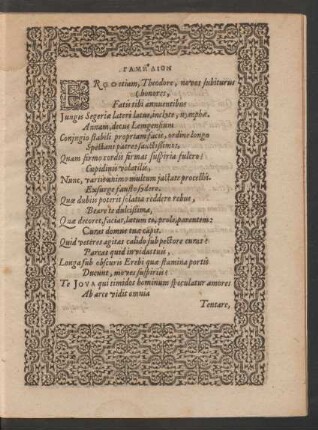 ΓΑΜΗΛΙΟΝ
ERgo etiam, Theodore, novos subiturus
honores,
Fatis tibi annuentibus
Jungis Segeriæ lateri latus, inclyte, nymphæ.
Annam, decus Lemgensium
Conjugio stabili propriam facis, ordine longo
Spectant patres sanctissimi.
Quam firmo cordis firmas suspiria fulcro!
Cupidinis volatilis,
Nunc, variis animo multum jactate procellis
Exsurge fausto sydere.
Quæ dubiis poterit solatia reddere rebus,
Beare te dulcissima,
Quæ decoret, faciat, lætum te, prole, parentem:
Curat domus tuæ cupit.
Quid veteres agitas calido sub pectore curas?
Parcas quid invidas tuis,
Longa sub obscuris Erebi quæ stamina portis
Ducunt, novos suspiriis?
Te JOVA qui timidos hominum speculatur amores
Ab arce vidit omnia
Tentare,